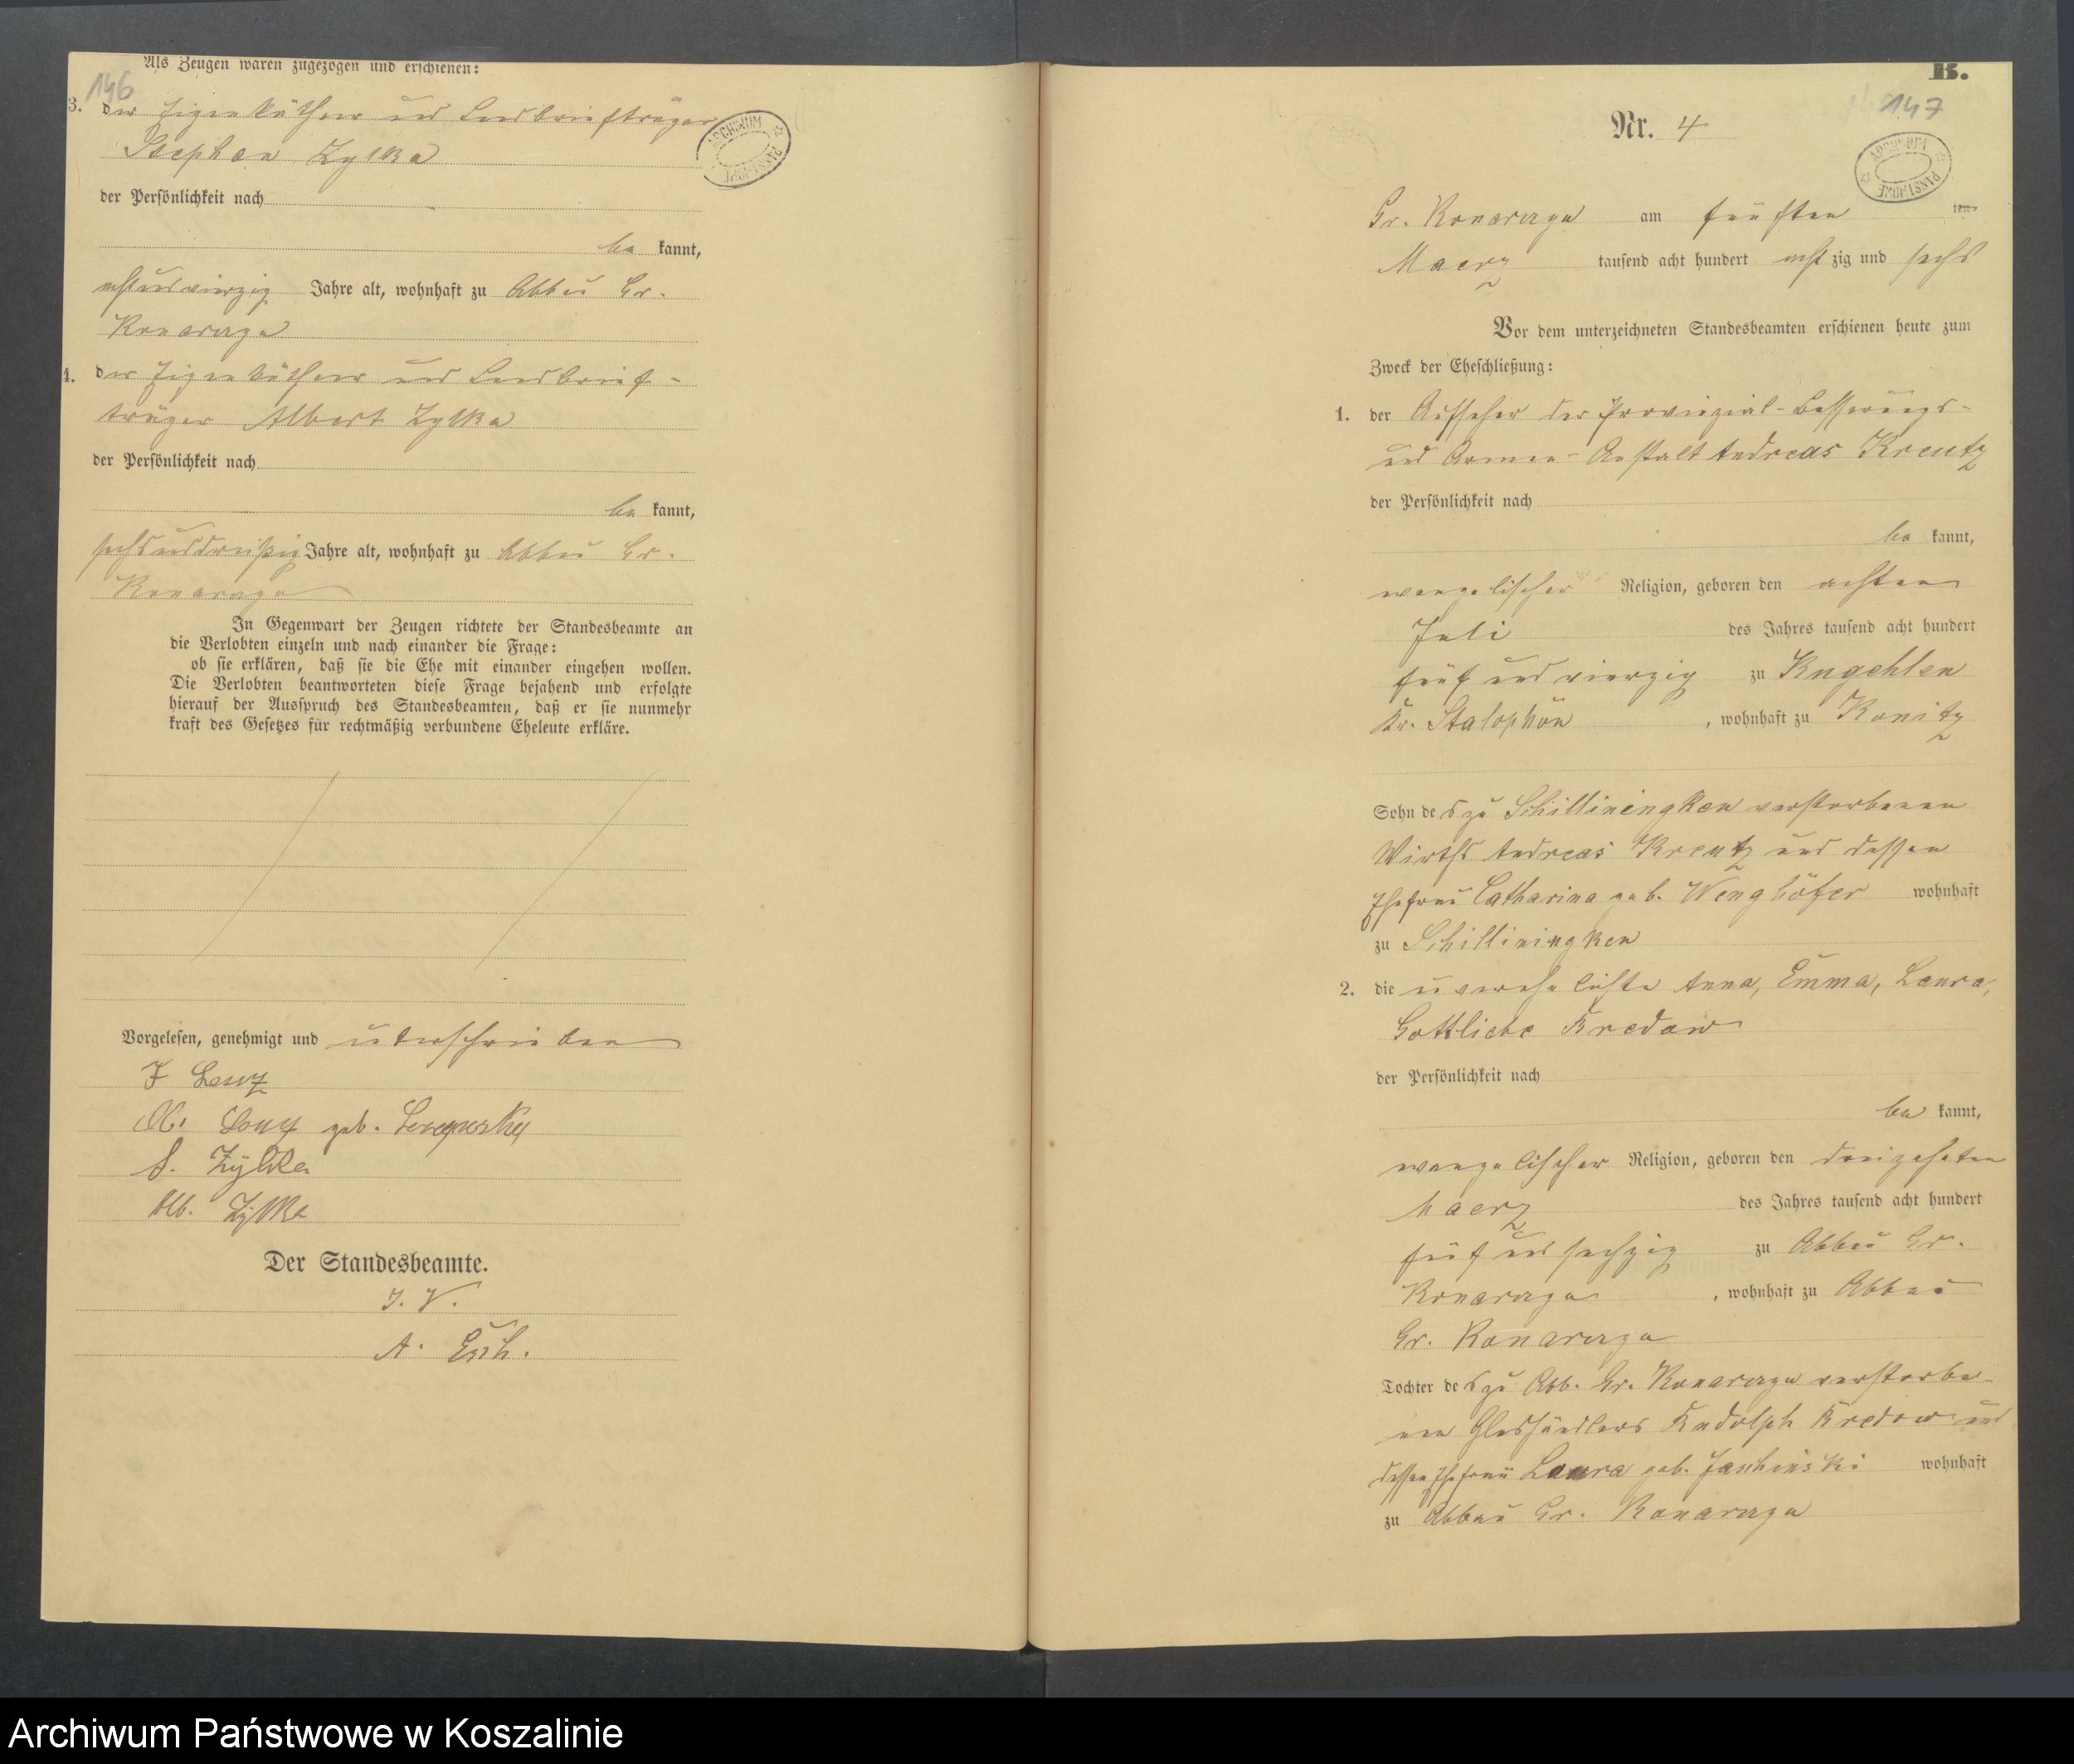 Als Zeugen waren zugezogen und erschienen:
146
3. der Eigenkäthner und Landbriefträger
Stephan Zylka
der Persönlichkeit nach
be kannt,
achtundvierzig Jahre alt, wohnhaft zu Abbau Gr.
Konarczyn
4. der Eigenkäthner und Landbrief-
träger Albert Zylka
der Persönlichkeit nach
be kannt,
sechsunddreißig Jahre alt, wohnhaft zu Abbau Gr.
Konarczyn
In Gegenwart der Zeugen richtete der Standesbeamte an
die Verlobten einzeln und nach einander die Frage:
ob sie erklären, daß sie die Ehe mit einander eingehen wollen.
Die Verlobten beantworteten diese Frage bejahend und erfolgte
hierauf der Ausspruch des Standesbeamten, daß er sie nunmehr
kraft des Gesetzes für rechtmäßig verbundene Eheleute erkläre.
Vorgelesen, genehmigt und unterschrieben
geb.
S. Zylka
Alb. Zylka
Der Standesbeamte.
I. V.
A. Esch.
B.
147
Nr. 4
ARCHIWUM PAŃSTWOWE
Gr. Konarczyn am fünften ten
Maerz tausend acht hundert acht zig und sechs
Vor dem unterzeichneten Standesbeamten erschienen heute zum
Zweck der Eheschließung:
1. der Aufseher der Provinzial-Besserungs-
und Armen-Anstalt Andreas Kreutz
der Persönlichkeit nach
be kannt,
evangelischer Religion, geboren den achten
Juli des Jahres tausend acht hundert
fünf und vierzig zu Kugehlen
Kr. Stalophön, wohnhaft zu Konitz
Sohn des zu Schilliningken verstorbenen
Wirths Andreas Kreutz und dessen
Ehefrau Catharina geb. Wenghöfer wohnhaft
zu Schilliningken
2. die unverehelichte Anna, Emma, Laura,
Gottliebe Bredow
der Persönlichkeit nach
be kannt,
evangelischer Religion, geboren den dreizehnten
Maerz des Jahres tausend acht hundert
fünf und sechzig zu Abbau Gr.
Konarczyn, wohnhaft zu Abbau
Gr. Konarczyn
Tochter des zu Abb. Gr. Konarczyn verstorbe-
nen Glashändlers Rudolph Bredow und
dessen Ehefrau Laura geb. Jaschinski wohnhaft
zu Abbau Gr. Konarczyn
Archiwum Państwowe w Koszalinie